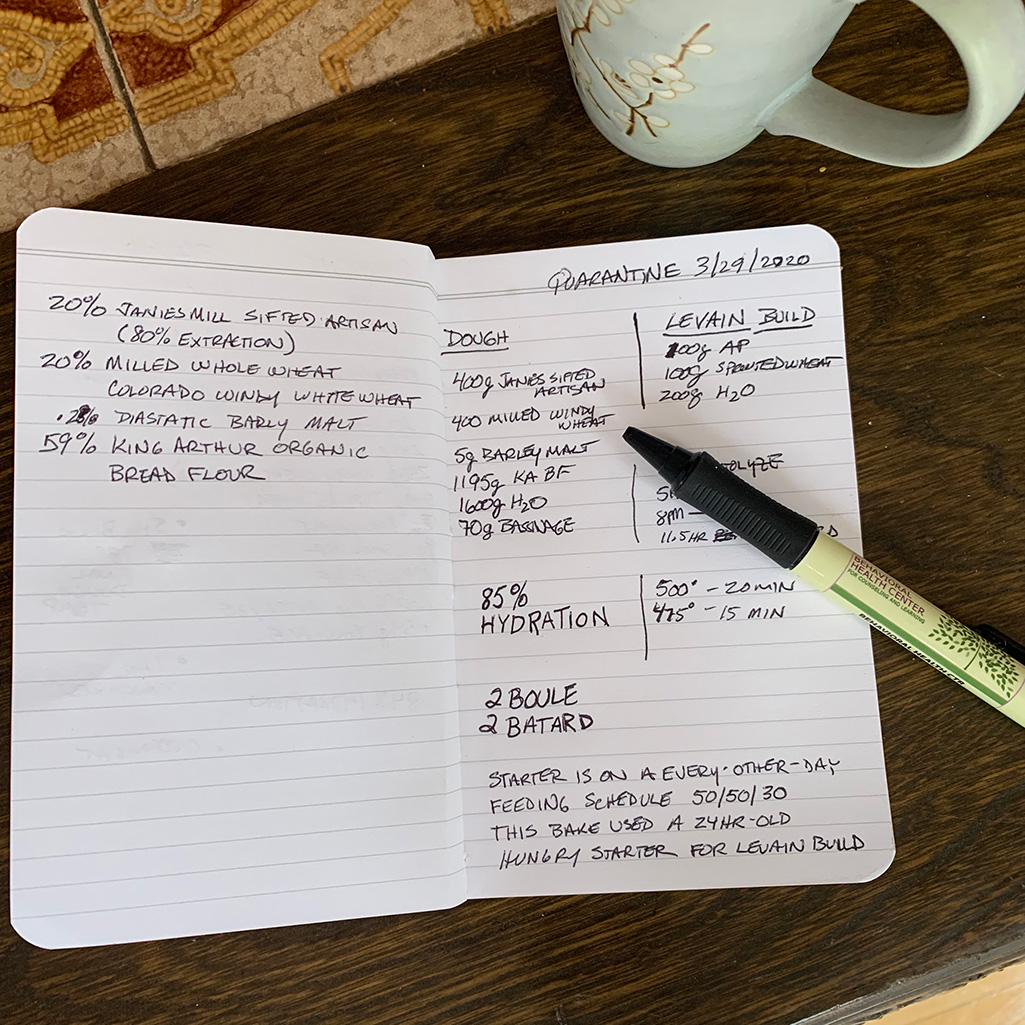 20% JANIES MILL SIFTED ARTISAN
(80% EXTRACTION)
20% MILLED WHOLE WHEAT
COLORADO WINDY WHITE WHEAT
DIASTATIC BARLY MALT
59% KING ARTHUR ORGANIC
BREAD FLOUR
QUARANTINE 3/29/2020
DOUGH
400g JANIES SIFTED
ARTISAN
400 MILLED WINDY
WHEAT
5g BARLEY MALT
1195g KA BF
1600g H2O
70g BASSNAGE
LEVAIN BUILD
100g AP
100g SPROUTED WHEAT
200g H2O
8PM
11.5HR
85%
HYDRATION
500° - 20 MIN
475° - 15 MIN
2 BOULE
2 BATARD
STARTER IS ON A EVERY-OTHER-DAY
FEEDING SCHEDULE 50/50/30
THIS BAKE USED A 24HR-OLD
HUNGRY STARTER FOR LEVAIN BUILD
BEHAVIORAL
HEALTH CENTER
FOR COUNSELING AND LEARNING
BEHAVIORAL HEALTH CTR